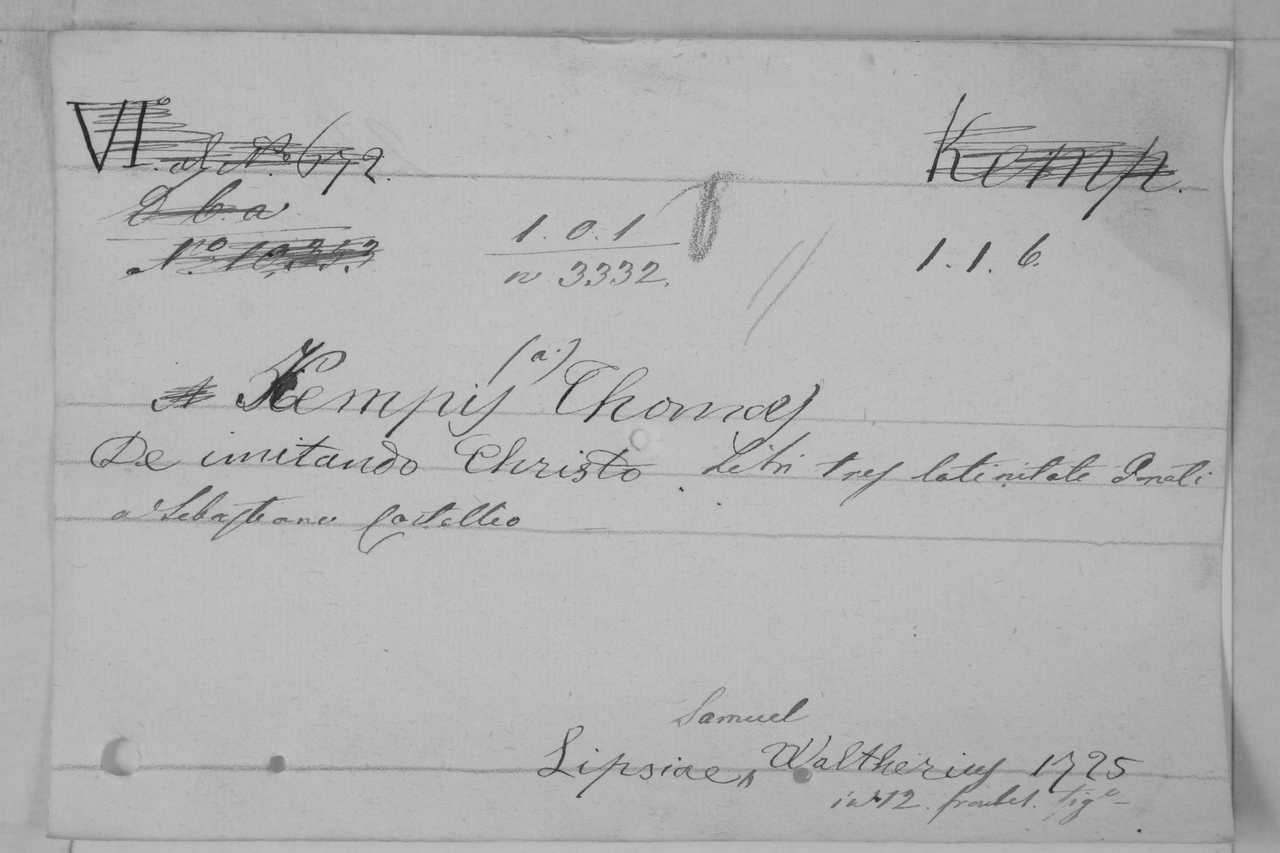 VI. al. No. 672.
Kemp.
D b. a
No. 10,353
1. 0. 1
n 3332.
1. 1. 6.
Kempis (a.) Thomas
De imitando Christo. Libri tres latinitate Donati
a Sebastiano Castellio
Samuel
Lipsiae, Waltherius 1725
in 12. frontesp. fig.